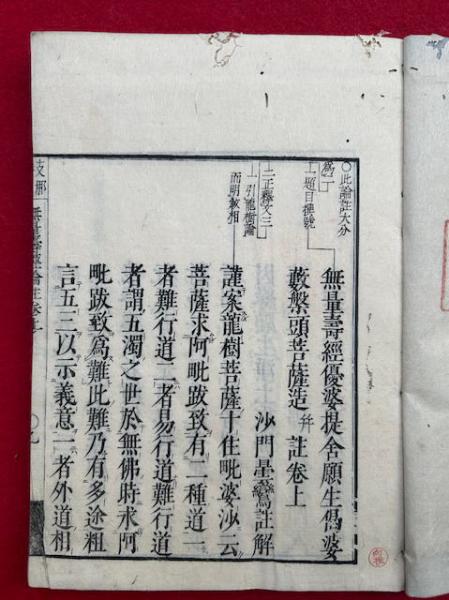 ○此論註大分
爲二
一題目撰號
無量壽經優婆提舍願生偈婆
藪槃頭菩薩造 幷 註卷上
沙門曇鸞註解
二正釋文三
一引龍樹論
而明教相
謹案龍樹菩薩十住毗婆沙云
菩薩求阿毗跋致有二種道一
者難行道二者易行道難行道
者謂五濁之世於無佛時求阿
毗跋致爲難此難乃有多途粗
言五三以示義意一者外道相
支那